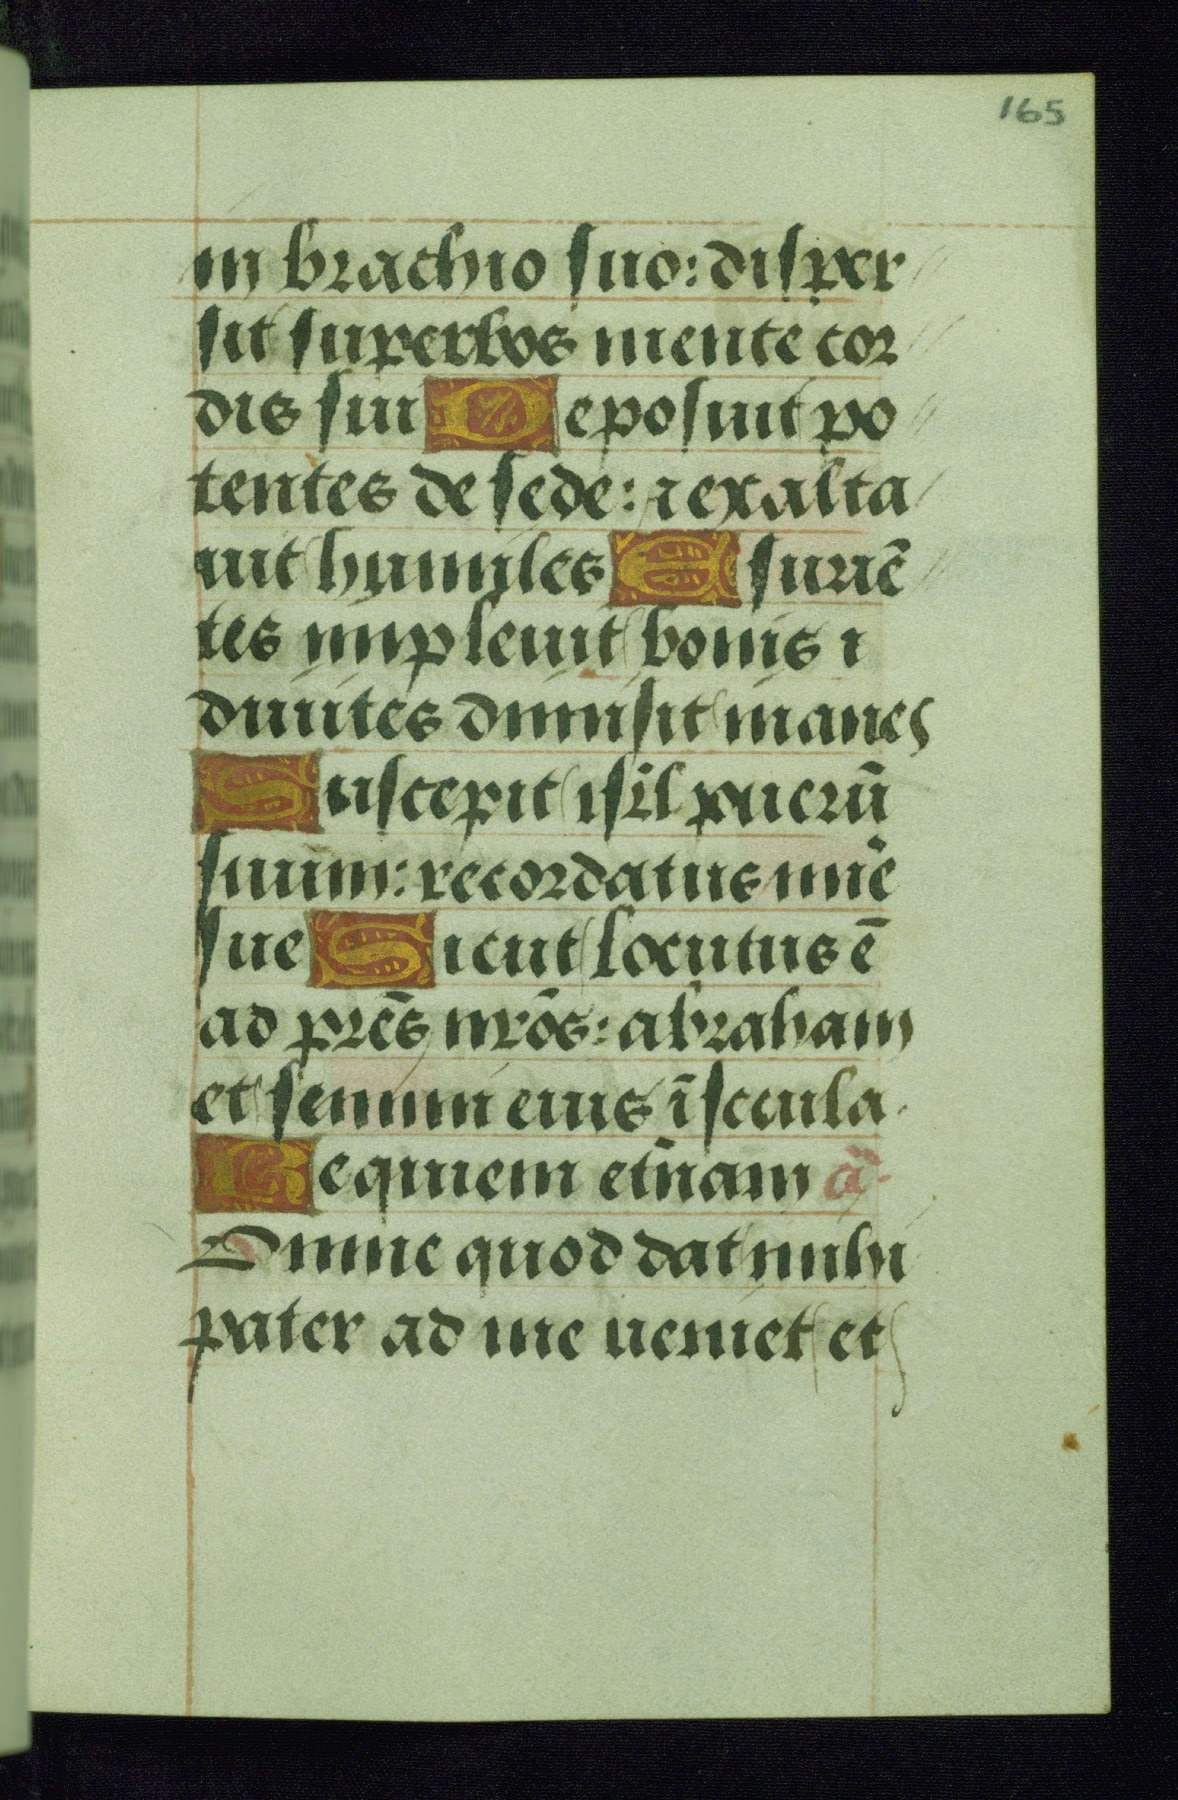 165
in brachio suo: disper
sit superbos mente cor
dis sui Deposuit po
tentes de sede: ⁊ exalta
uit humiles Esuriē
tes impleuit bonis ⁊
diuites dimisit inanes
Suscepit isrl̄ puerū
suum: recordatus mīe
sue Sicut locutus ē
ad prēs nrōs: abraham
et semini eius ī secula.
Requiem etn̄am ā.
Omne quod dat michi
pater ad me ueniet et